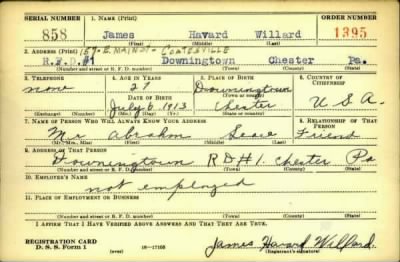 SERIAL NUMBER 1. NAME (Print) ORDER NUMBER
858 James Havard Willard 1395
(First) (Middle) (Last)
2. ADDRESS (Print) 157-E. MAIN ST- COATESVILLE
R.F.D.#1 Downingtown Chester Pa.
(Number and street or R. F. D. number) (Town) (County) (State)
3. TELEPHONE 4. AGE IN YEARS 5. PLACE OF BIRTH 6. COUNTRY OF CITIZENSHIP
none 27 Downingtown
DATE OF BIRTH (Town or county)
July 6, 1913 Chester U.S.A.
(Exchange) (Number) (Mo.) (Day) (Yr.) (State or country)
7. NAME OF PERSON WHO WILL ALWAYS KNOW YOUR ADDRESS 8. RELATIONSHIP OF THAT PERSON
Mr Abraham Friend
(Mr., Mrs., Miss) (First) (Middle) (Last)
9. ADDRESS OF THAT PERSON
Downingtown R D #1. Chester Pa
(Number and street or R. F. D. number) (Town) (County) (State)
10. EMPLOYER'S NAME
not employed
11. PLACE OF EMPLOYMENT OR BUSINESS
(Number and street or R. F. D. number) (Town) (County) (State)
I AFFIRM THAT I HAVE VERIFIED ABOVE ANSWERS AND THAT THEY ARE TRUE.
REGISTRATION CARD
D. S. S. Form 1 (over) 16-17105 James Havard Willard.
(Registrant's signature)